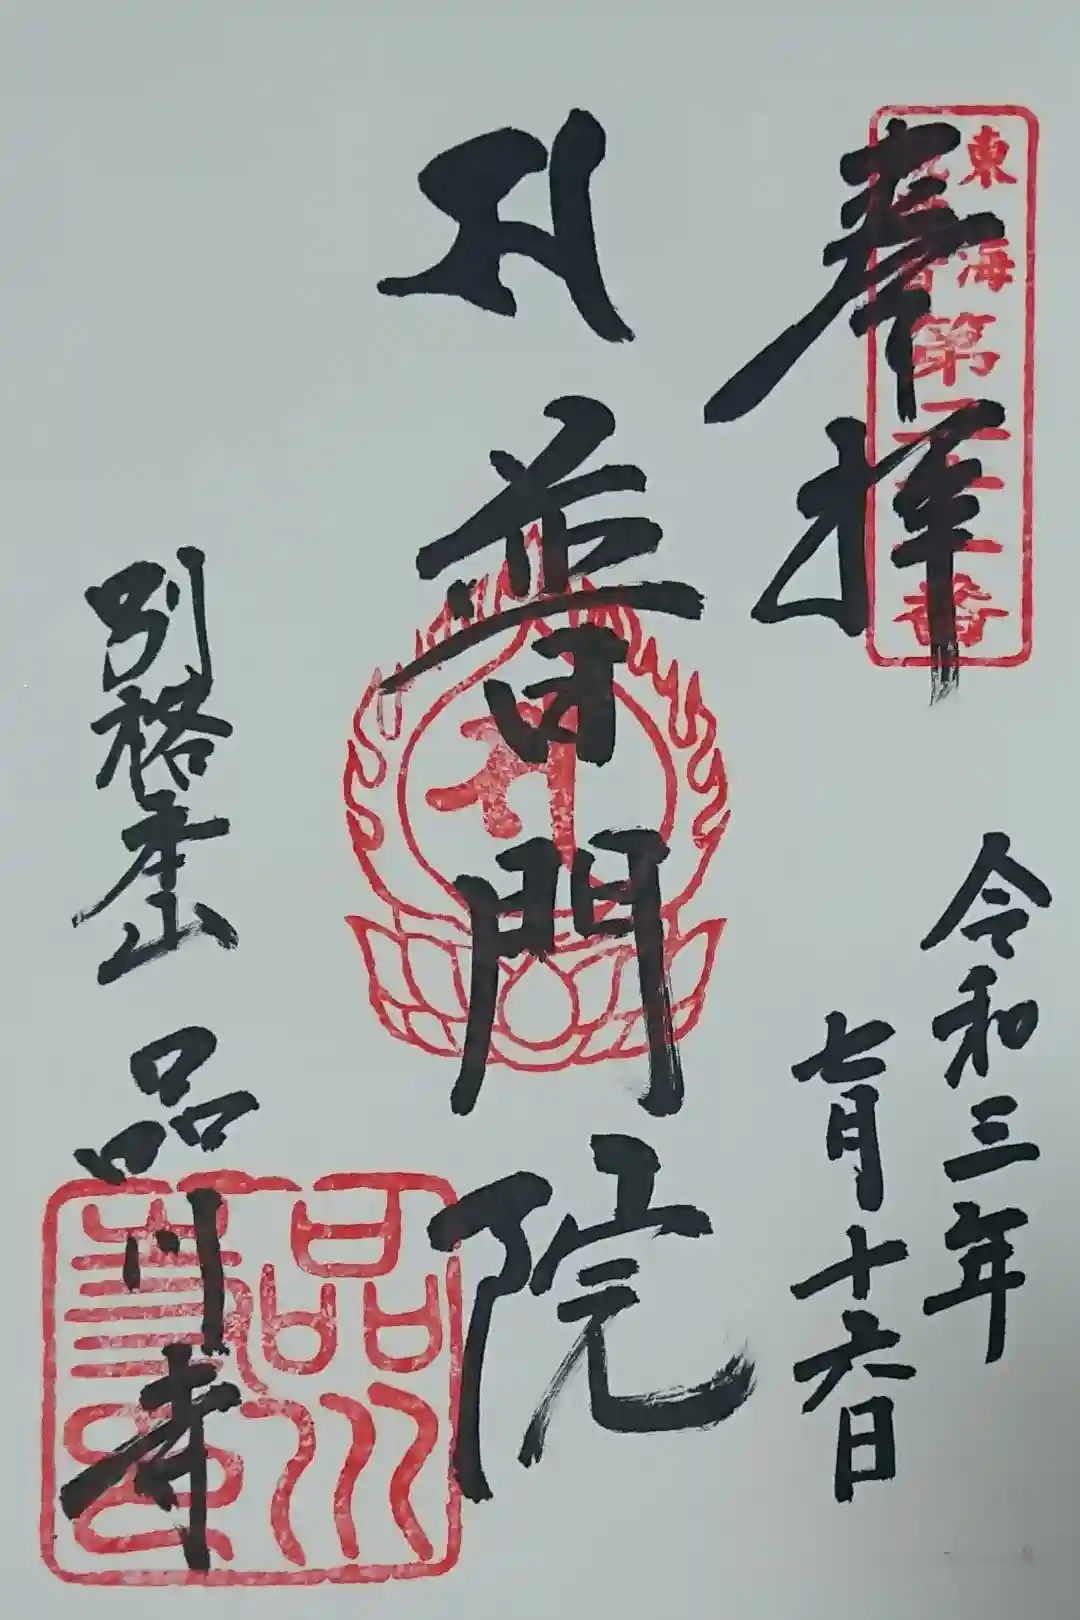 奉拝
東海
第
番
令和三年
七月十六日
普門院
別格本山 品川寺
品川